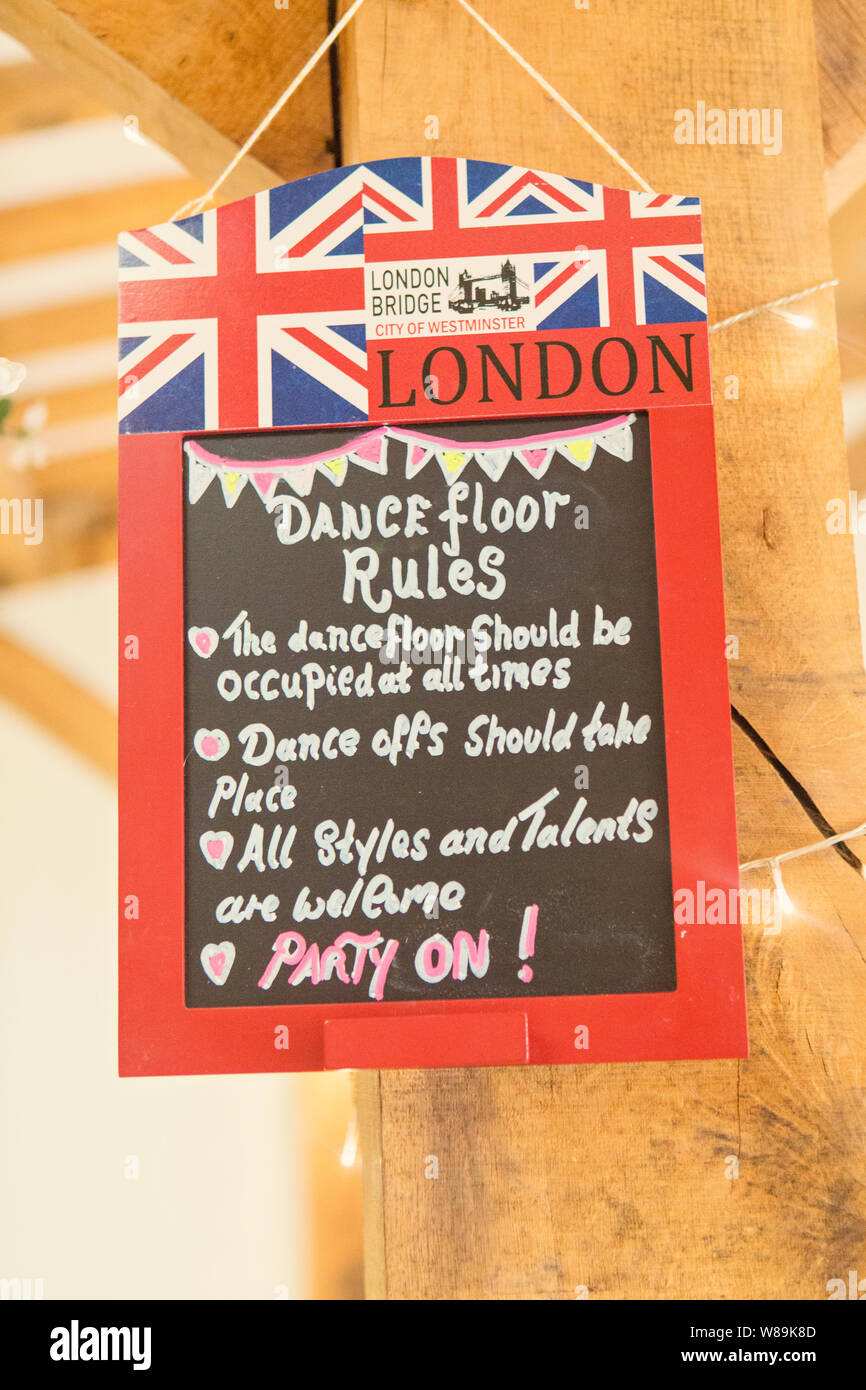 LONDON
BRIDGE
CITY OF WESTMINSTER
LONDON
DANCEfloor
Rules
The dancefloor Should be
occupied at all times
Dance offs Should take
Place
All Styles and Talents
are welcome
PARTY ON!
alamy
Image ID: W89K8D
www.alamy.com